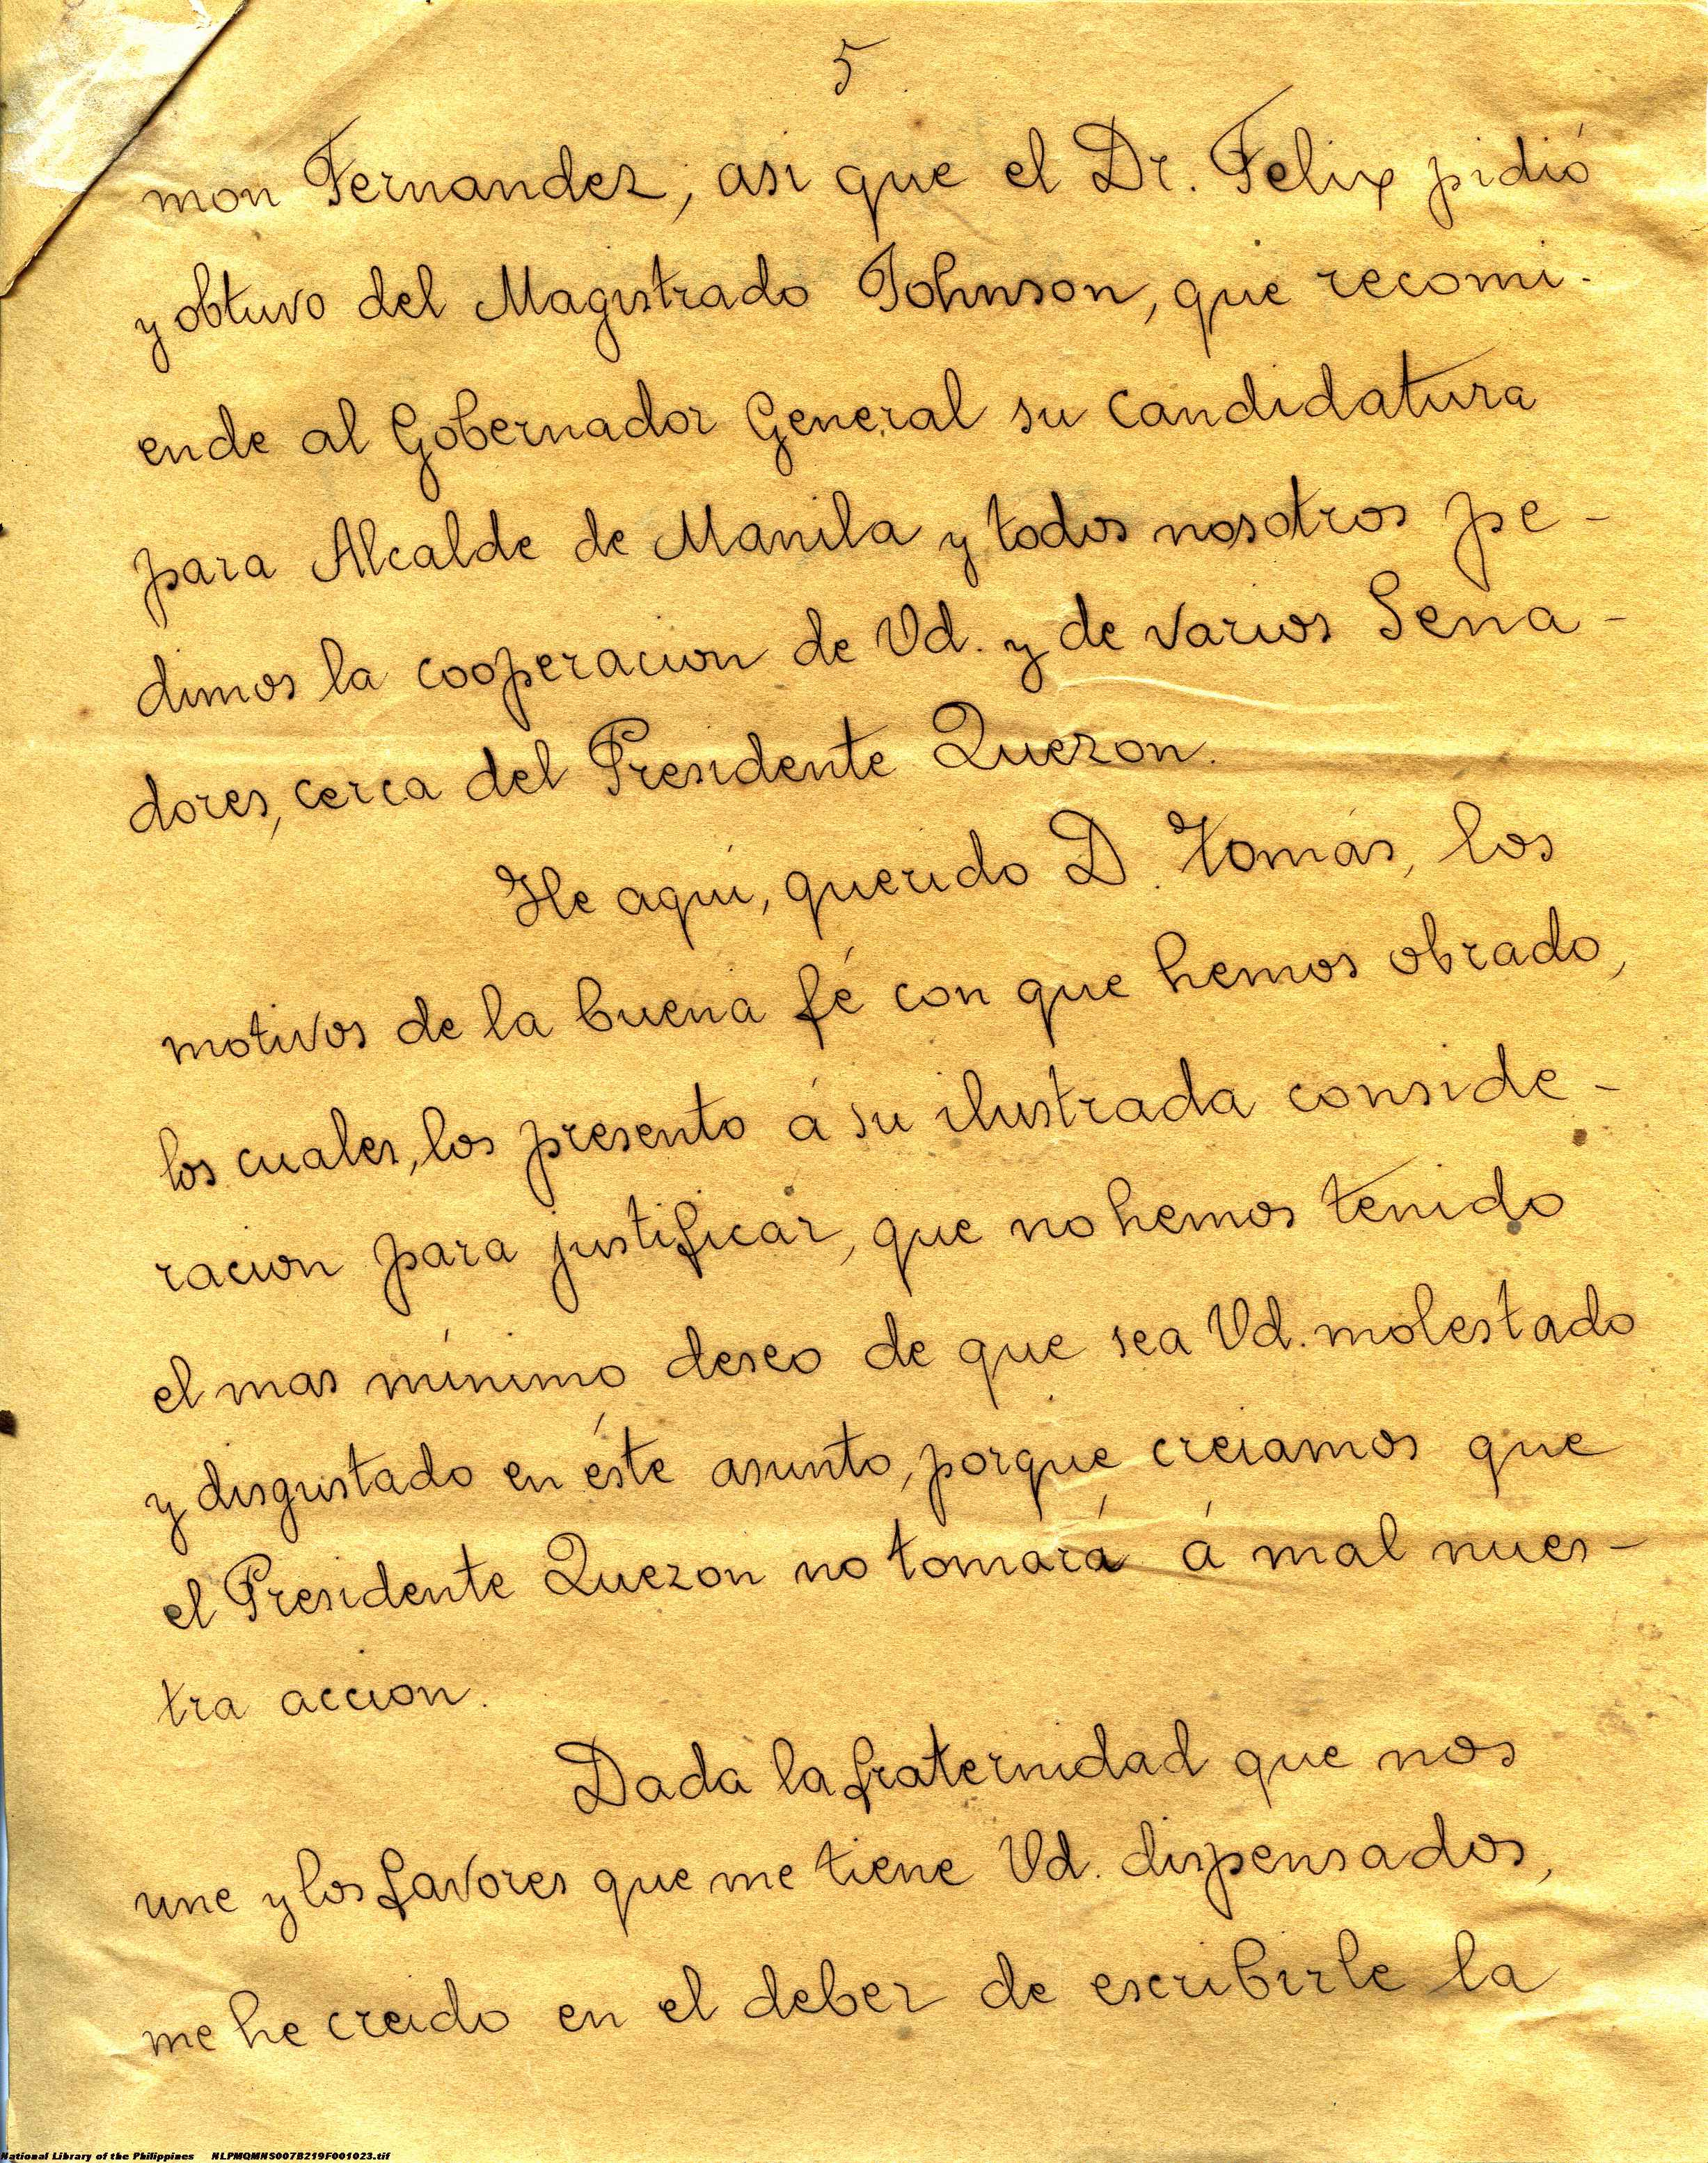 5
mon Fernandez, asi que el Dr. Felix pidió
y obtuvo del Magistrado Johnson, que recomi-
ende al Gobernador General su candidatura
para Alcalde de Manila y todos nosotros pe-
dimos la cooperacion de Vd. y de varios Sena-
dores, cerca del Presidente Quezon.
He aquí, querido D. Tomás, los
motivos de la buena fé con que hemos obrado,
los cuales, los presento á su ilustrada conside-
racion para justificar, que no hemos tenido
el mas mínimo deseo de que sea Vd. molestado
y disgustado en éste asunto, porque creiamos que
el Presidente Quezon no tomará á mal nues-
tra accion.
Dada la fraternidad que nos
une y los favores que me tiene Vd. dispensados,
me he creido en el deber de escribirle la
National Library of the Philippines NLPMQMNS007B219F001023.tif